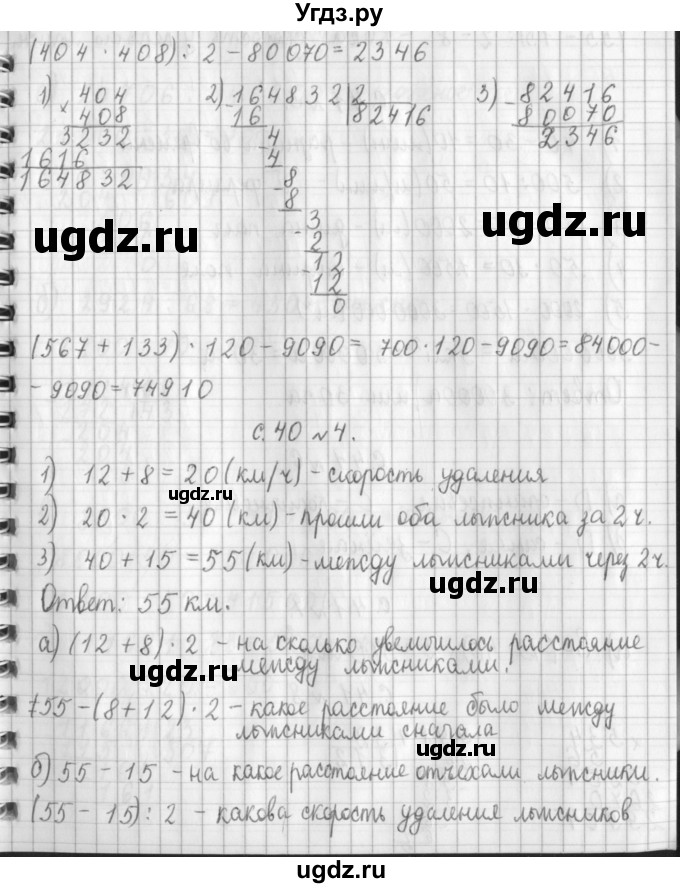 Угдз.ру
(404 · 408) : 2 - 80070 = 2346
1) × 404 2) - 164832 | 2 3) - 82416
408 16 82416 80070
3232 - 4 2346
1616 4
164832 - 8
8
- 3
2
- 12
12
0
ugdz.ru ugdz.ru
(567 + 133) · 120 - 9090 = 700 · 120 - 9090 = 84000 -
- 9090 = 74910
с. 40 №4.
1) 12 + 8 = 20 (км/ч) - скорость удаления
ugdz.ru
2) 20 · 2 = 40 (км) - прошли оба лыжника за 2 ч.
3) 40 + 15 = 55 (км) - между лыжниками через 2 ч.
ugdz.ru
Ответ: 55 км.
а) (12 + 8) · 2 - на сколько увеличилось расстояние
между лыжниками.
ugdz.ru
55 - (8 + 12) · 2 - какое расстояние было между
лыжниками сначала
ugdz.ru
б) 55 - 15 - на какое расстояние отъехали лыжники.
(55 - 15) : 2 - какова скорость удаления лыжников
ugdz.ru
ugdz.ru